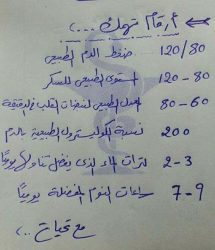 أرقام تهمك ...
120/80 ضغط الدم الطبيعي
120-80 المستوى الطبيعي للسكر
80-60 المعدل الطبيعي لنبضات القلب في الدقيقة
200 نسبة الكوليسترول الطبيعية بالدم
2-3 لترات الماء الذي يفضل تناولها يوميا
7-9 ساعات النوم المفضلة يوميا
مع تحيات ..